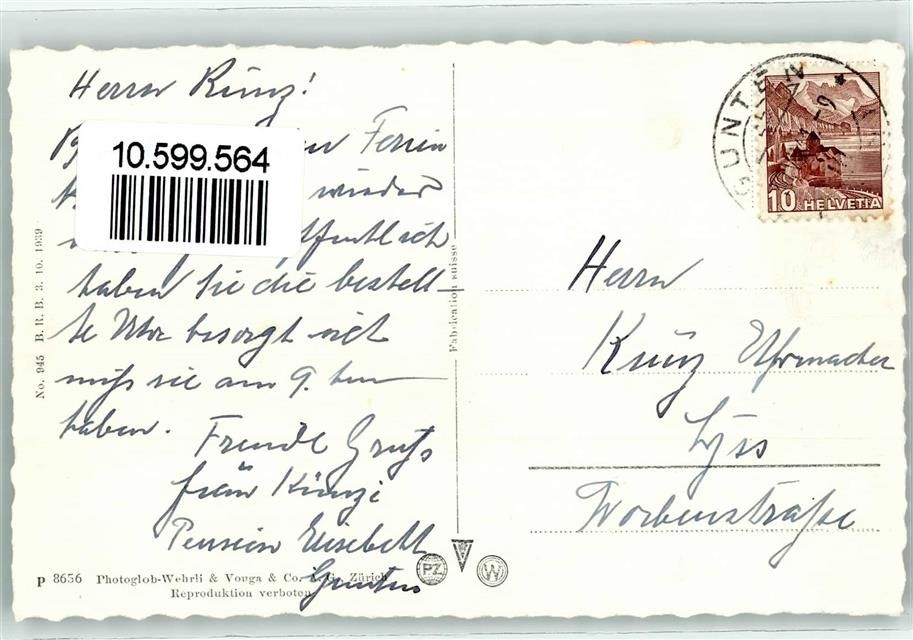 Herrn Künz!
10.599.564
Ferien
wieder
haben Sie die bestell-
te Uhr besorgt
muss sie am 9. ten
haben.
Freundl Gruss
frau Künzi
Pension Elisabeth
Gunten
No. 945 B. R. B. 3. 10. 1939
Fabrication suisse
p 8656 Photoglob-Wehrli & Vouga & Co. A. G. Zürich
Reproduktion verboten
PZ
W
GUNTEN
10 HELVETIA
Herrn
Künz Uhrmacher
Lyss
Worbenstraße